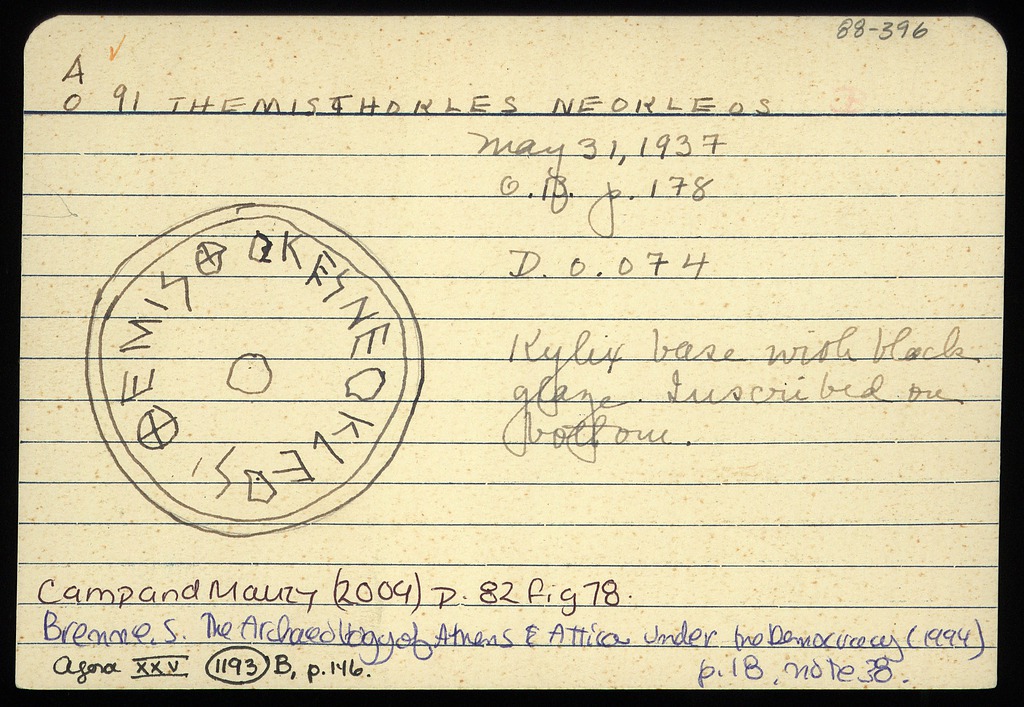 88-396
A
O 91 THEMISTHOKLES NEOKLEOS
May 31, 1937
O.B. p. 178
D. 0.074
⊗EMIS⊗OKLES NEOKLEOS
Kylix base with black
glaze. Inscribed on
bottom.
Camp and Mauzy (2009) p. 82 fig 78.
Brenne, S. The Archaeology of Athens & Attica under the Democracy (1994)
p. 18, note 38.
Agora XXV 1193 B, p. 146.